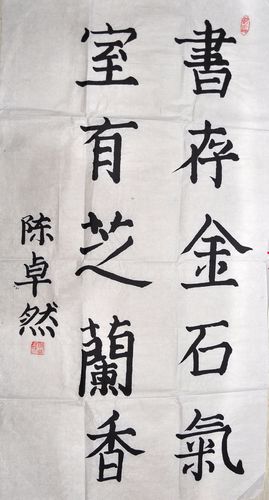 書存金石氣
室有芝蘭香
陈卓然